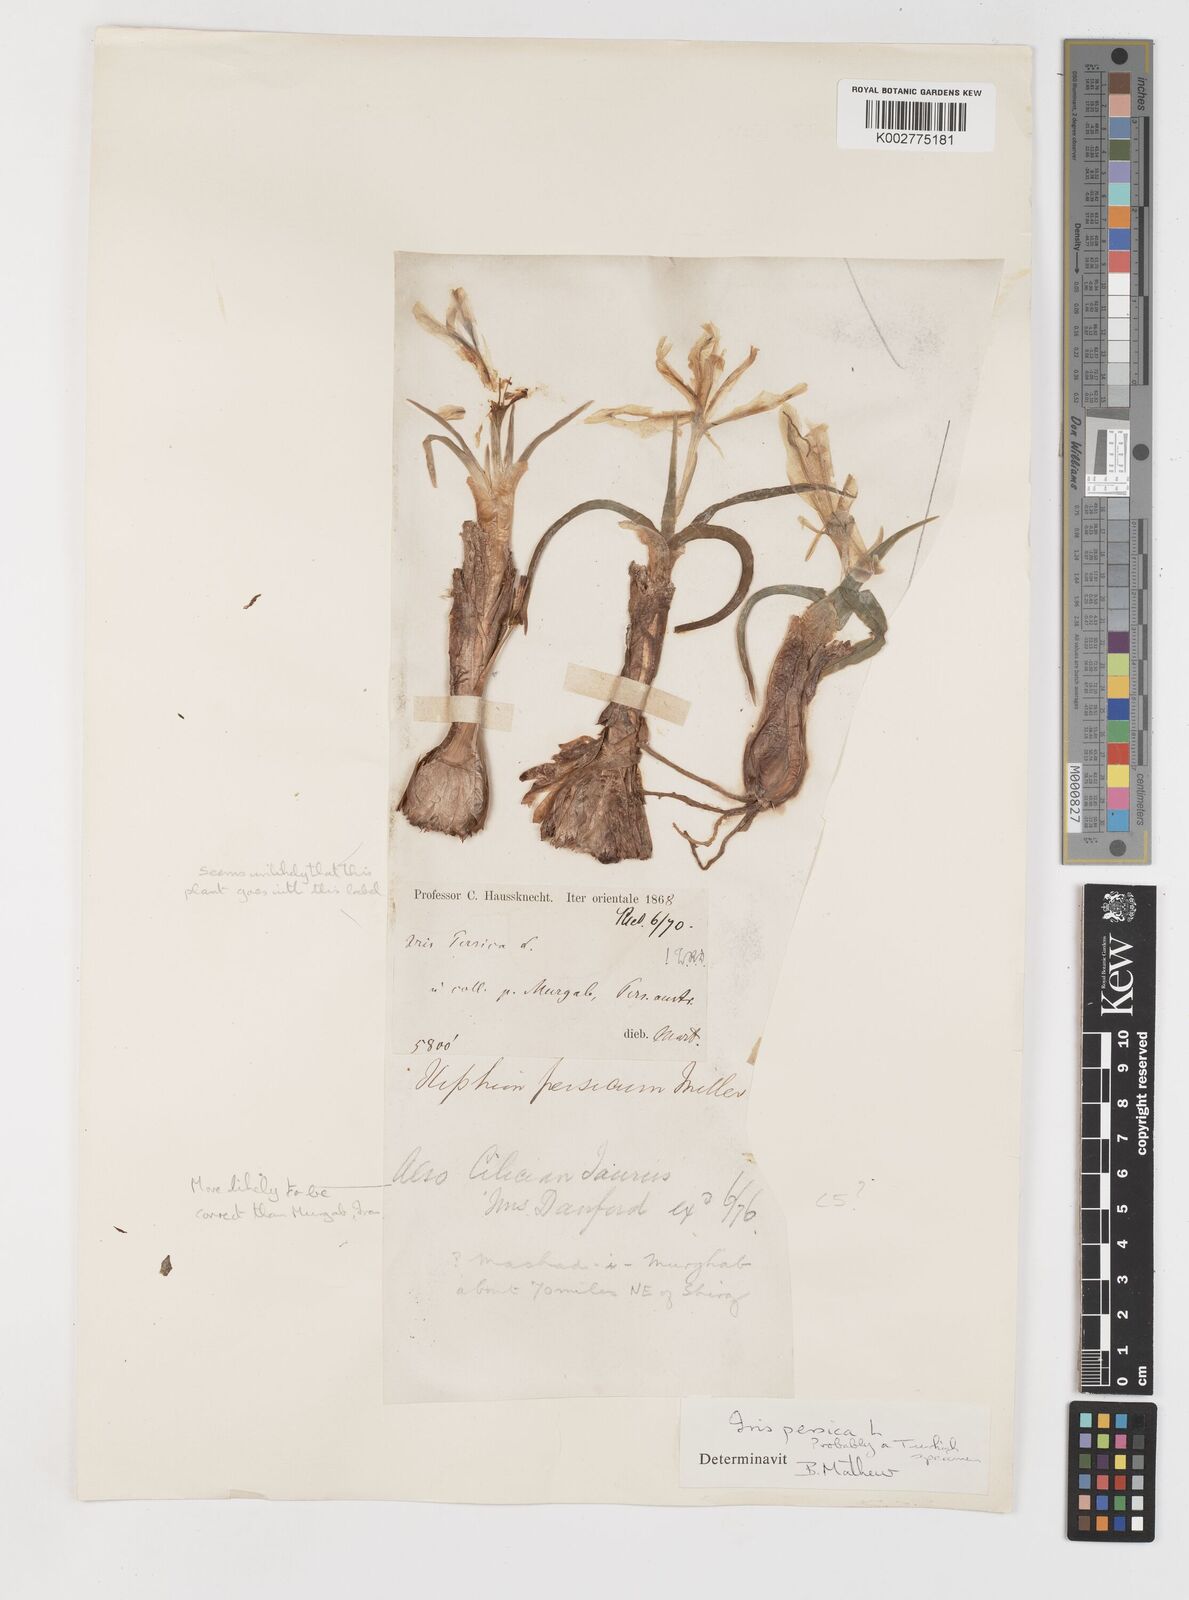 ROYAL BOTANIC GARDENS KEW
K002775181
seems unlikely that this
plant goes with this label
Professor C. Haussknecht. Iter orientale 1868
Recd. 6/70.
Iris Persica L.
in coll. p. Murgab, Pers. austr.
5800'
dieb. Mart.
Xiphion persicum Miller
Also Cilician Taurus
Mrs. Danford ex^d 6/76.
C5?
More likely to be
correct than Murgab, Iran
? Mashad-i-Murghab
about 70 miles NE of Shiraz
Iris persica L
Probably a Turkish
specimen
Determinavit B. Mathew
inches
centimetres
Density
Don Williams
M000827
Royal Botanic Gardens
Kew
copyright reserved
0 1 2 3 4 5 6 7 8 9 10
cm